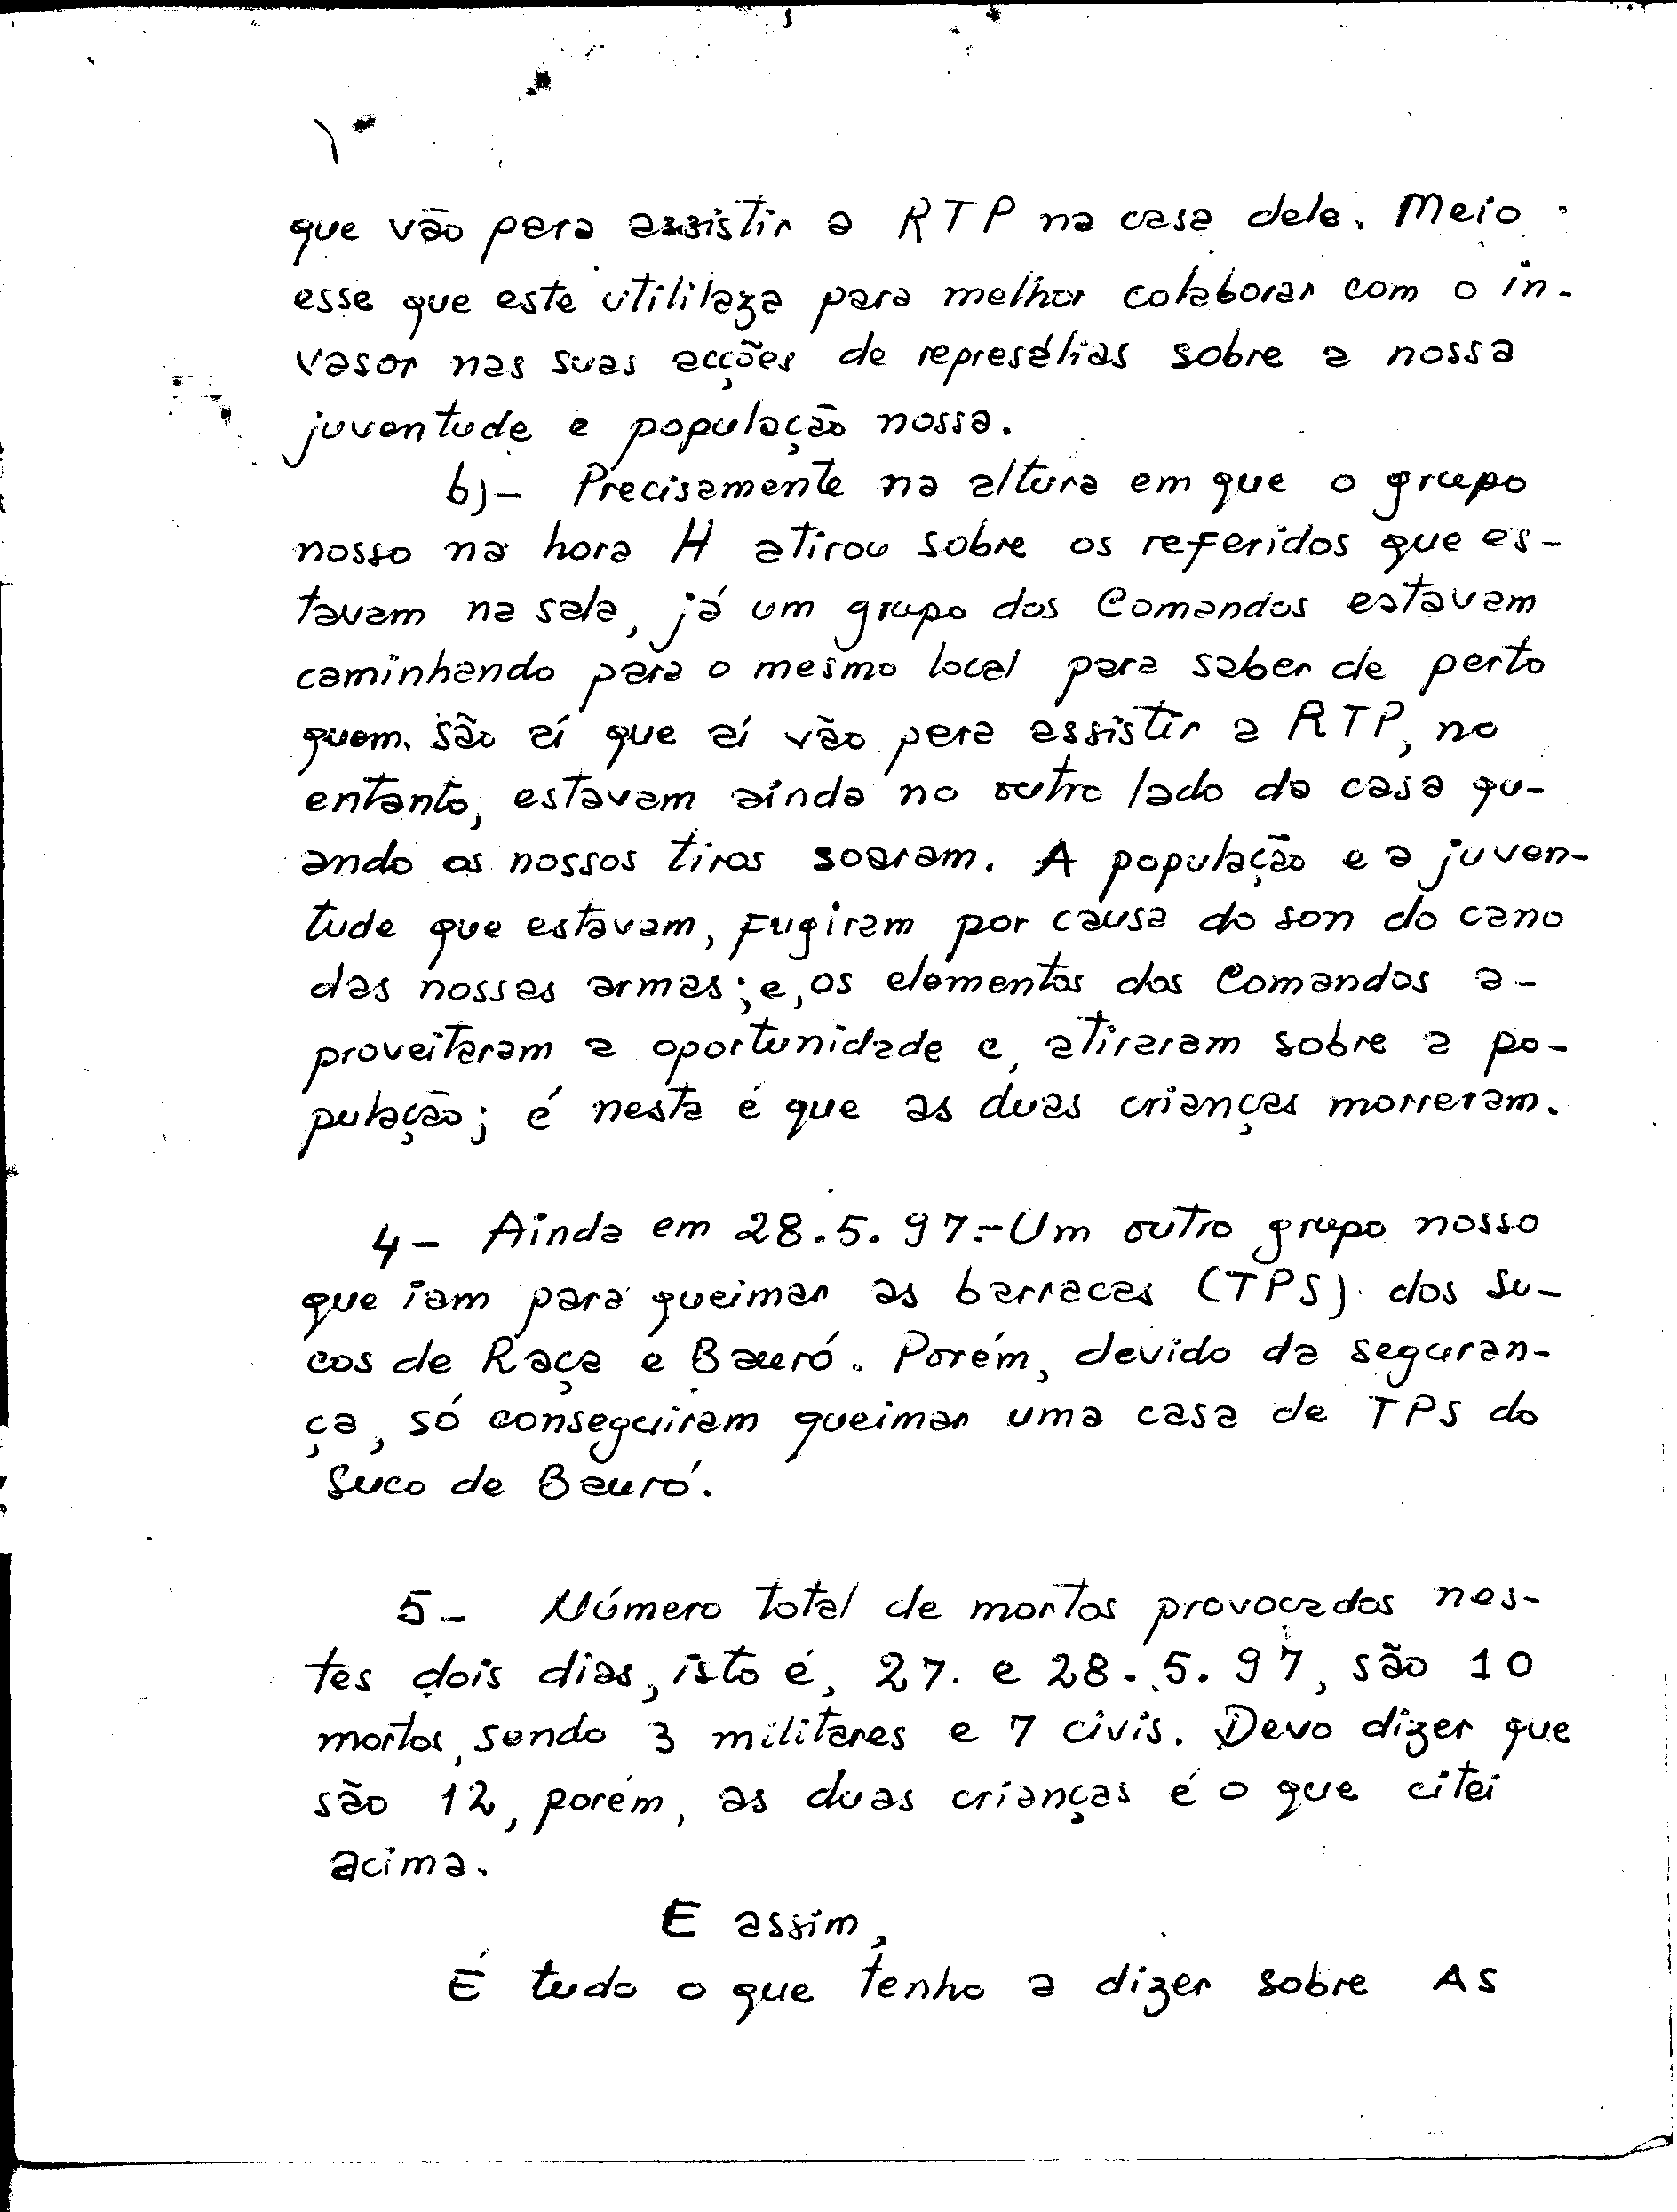 que vão para assistir a RTP na casa dele. Meio
esse que este utililaza para melhor colaborar com o in-
vasor nas suas acções de represálias sobre a nossa
juventude e população nossa.
b)- Precisamente na altura em que o grupo
nosso na hora H atirou sobre os referidos que es-
tavam na sala, já um grupo dos Comandos estavam
caminhando para o mesmo local para saber de perto
quem são aí que aí vão para assistir a RTP, no
entanto, estavam ainda no outro lado da casa qu-
ando os nossos tiros soaram. A população e a juven-
tude que estavam, fugiram por causa do son do cano
das nossas armas; e, os elementos dos Comandos a-
proveitaram a oportunidade e, atiraram sobre a po-
pulação; é nesta é que as duas crianças morreram.
4- Ainda em 28.5.97.- Um outro grupo nosso
que iam para queimar as barracas (TPS) dos Su-
cos de Raça e Bauró. Porém, devido da seguran-
ça, só conseguiram queimar uma casa de TPS do
Suco de Bauró.
5- Número total de mortos provocados nes-
tes dois dias, isto é, 27. e 28.5.97, são 10
mortos, sendo 3 militares e 7 civis. Devo dizer que
são 12, porém, as duas crianças é o que citei
acima.
E assim,
É tudo o que tenho a dizer sobre AS